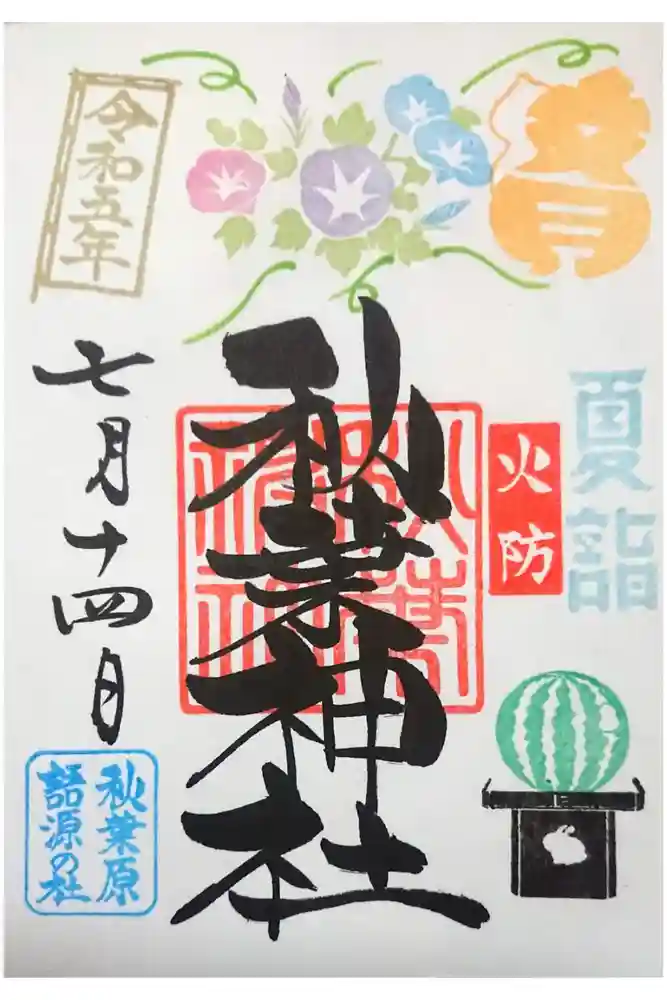 夏詣
火防
秋葉神社
令和五年
七月十四日
秋葉原
語源の社